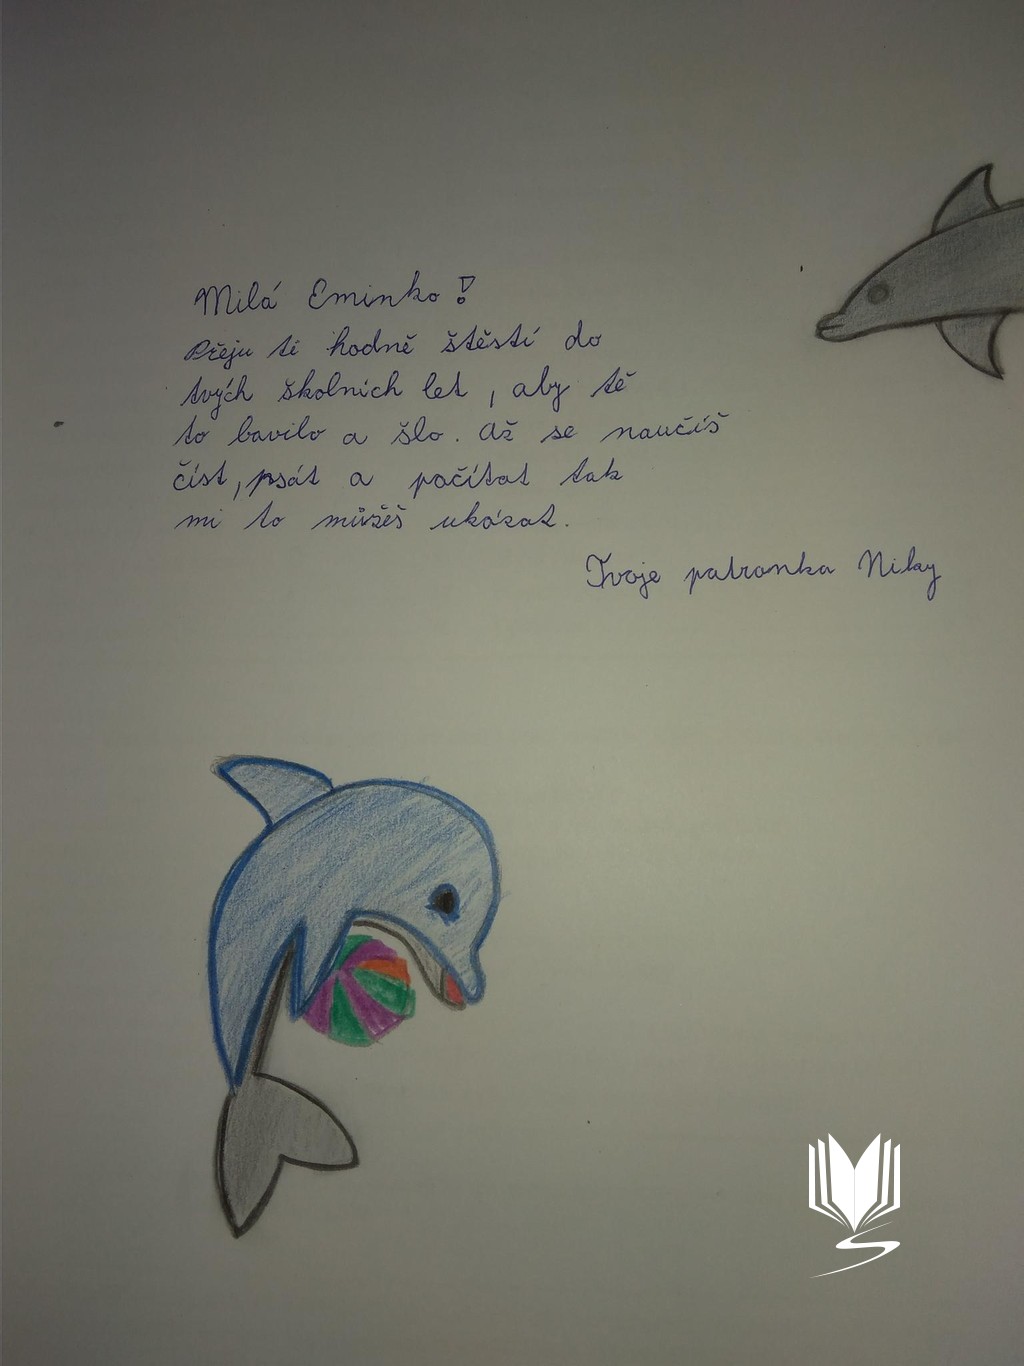 Milá Eminko!
Přeju ti hodně štěstí do
tvých školních let, aby tě
to bavilo a šlo. Až se naučíš
číst, psát a počítat tak
mi to můžeš ukázat.
Tvoje patronka Niky